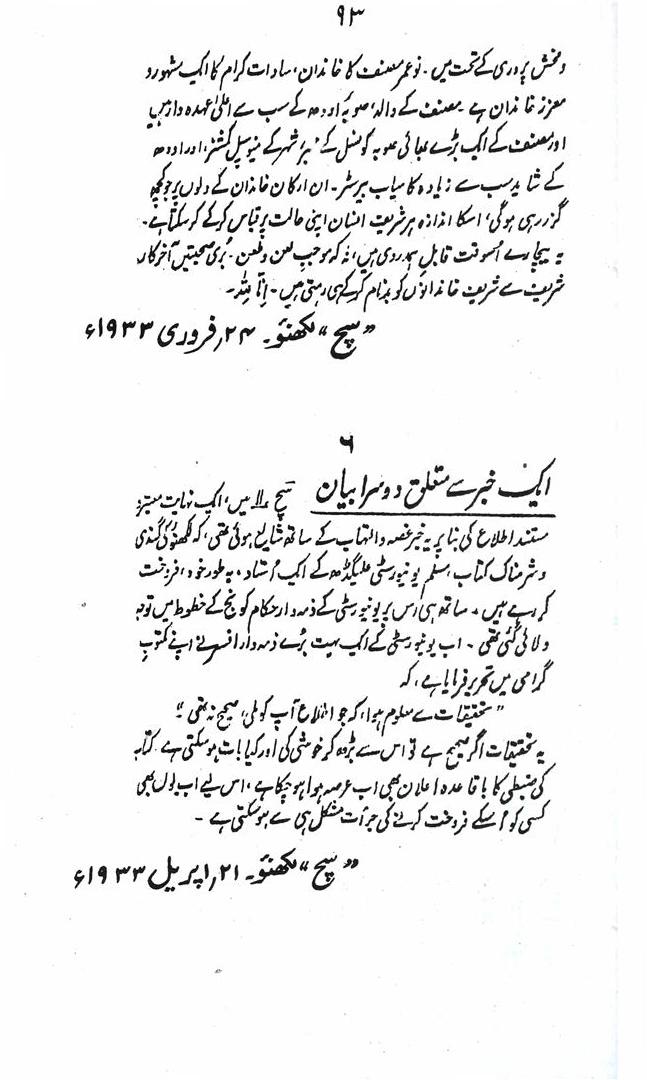 ۹۳
و فحش پروری کے تحت میں۔ نوعمر مصنف کا خاندان، سادات کرام کا ایک مشہور و
معزز خاندان ہے۔ مصنف کے والد، صوبۂ اودھ کے سب سے اعلیٰ عہدہ دار ہیں
اور مصنف کے ایک بڑے بھائی صوبہ کونسل کے نیز شہر کے میونسپل کمشنر، اور اودھ
کے شاید سب سے زیادہ کامیاب بیرسٹر۔ ان ارکان خاندان کے دلوں پر جو کچھ
گزر رہی ہوگی، اسکا اندازہ ہر شریف انسان اپنی حالت پر قیاس کر کے کر سکتا ہے۔
یہ بیچارے اُسوقت قابلِ ہمدردی ہیں، نہ کہ موجبِ لعن و طعن۔ بُری صحبتیں آخر کار
شریف سے شریف خاندانوں کو بدنام کر کے ہی رہتی ہیں۔ اِنّا لِلّٰہ۔
”سچ“ لکھنؤ۔ ۲۴؍ فروری ۱۹۳۳ء
۶
ایک خبر سے متعلق دوسرا بیان سچ میں، ایک نہایت معتبر و
مستند اطلاع کی بنا پر یہ خبر غصہ و التہاب کے ساتھ شایع ہوئی تھی، کہ لکھنؤ کی گندی
و شرمناک کتاب، مسلم یونیورسٹی علیگڈھ کے ایک اُستاد، بہ طور خود، فروخت
کر رہے ہیں۔ ساتھ ہی اس پر یونیورسٹی کے ذمہ دار حکام کو نج کے خطوط میں توجہ
دلائی گئی تھی۔ اب یونیورسٹی کے ایک بہت بڑے ذمہ دار افسر نے اپنے مکتوبِ
گرامی میں تحریر فرمایا ہے، کہ
”تحقیقات سے معلوم ہوا، کہ جو اطلاع آپ کو ملی، صحیح نہ تھی“۔
یہ تحقیقات اگر صحیح ہے تو اس سے بڑھ کر خوشی کی اور کیا بات ہو سکتی ہے۔ کتاب
کی ضبطی کا باقاعدہ اعلان بھی اب عرصہ ہوا ہو چکا ہے، اس لیے اب یوں بھی
کسی کو اُسکے فروخت کرنے کی جرأت مشکل ہی سے ہو سکتی ہے۔
”سچ“ لکھنؤ۔ ۲۱؍ اپریل ۱۹۳۳ء